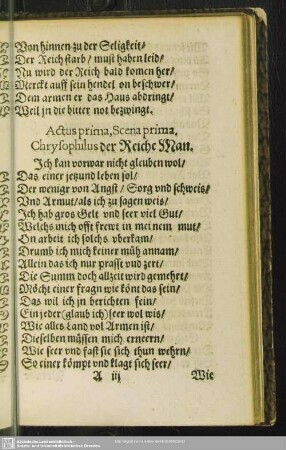 Von hinnen zu der Seligkeit/
Der Reich starb/ must haben leid/
Nu wird der Reich bald komen her/
Merckt auff sein hendel on beschwer/
Dem armen er das Haus abdringt/
Weil jn die bitter not bezwingt.
Actus prima, Scena prima,
Chrysophilus der Reiche Man.
Ich kan vorwar nicht gleuben wol/
Das einer jetzund leben sol/
Der wenigr von Angst/ Sorg vnd schweis/
Vnd Armut/ als ich zu sagen weis/
Ich hab gros Gelt vnd seer viel Gut/
Welchs mich offt frewt in meinem mut/
On arbeit ich solchs vberkam/
Drumb ich mich keiner müh annam/
Allein das ich nur prasst vnd zert/
Die Summ doch allzeit wird gemehrt/
Möcht einer fragn wie könt das sein/
Das wil ich jn berichten fein/
Ein jeder (glaub ich) seer wol wis/
Wie alles Land vol Armen ist/
Dieselben müssen mich erneern/
Wie seer vnd fast sie sich thun wehrn/
So einer kömpt vnd klagt sich seer/
A iij
Wie